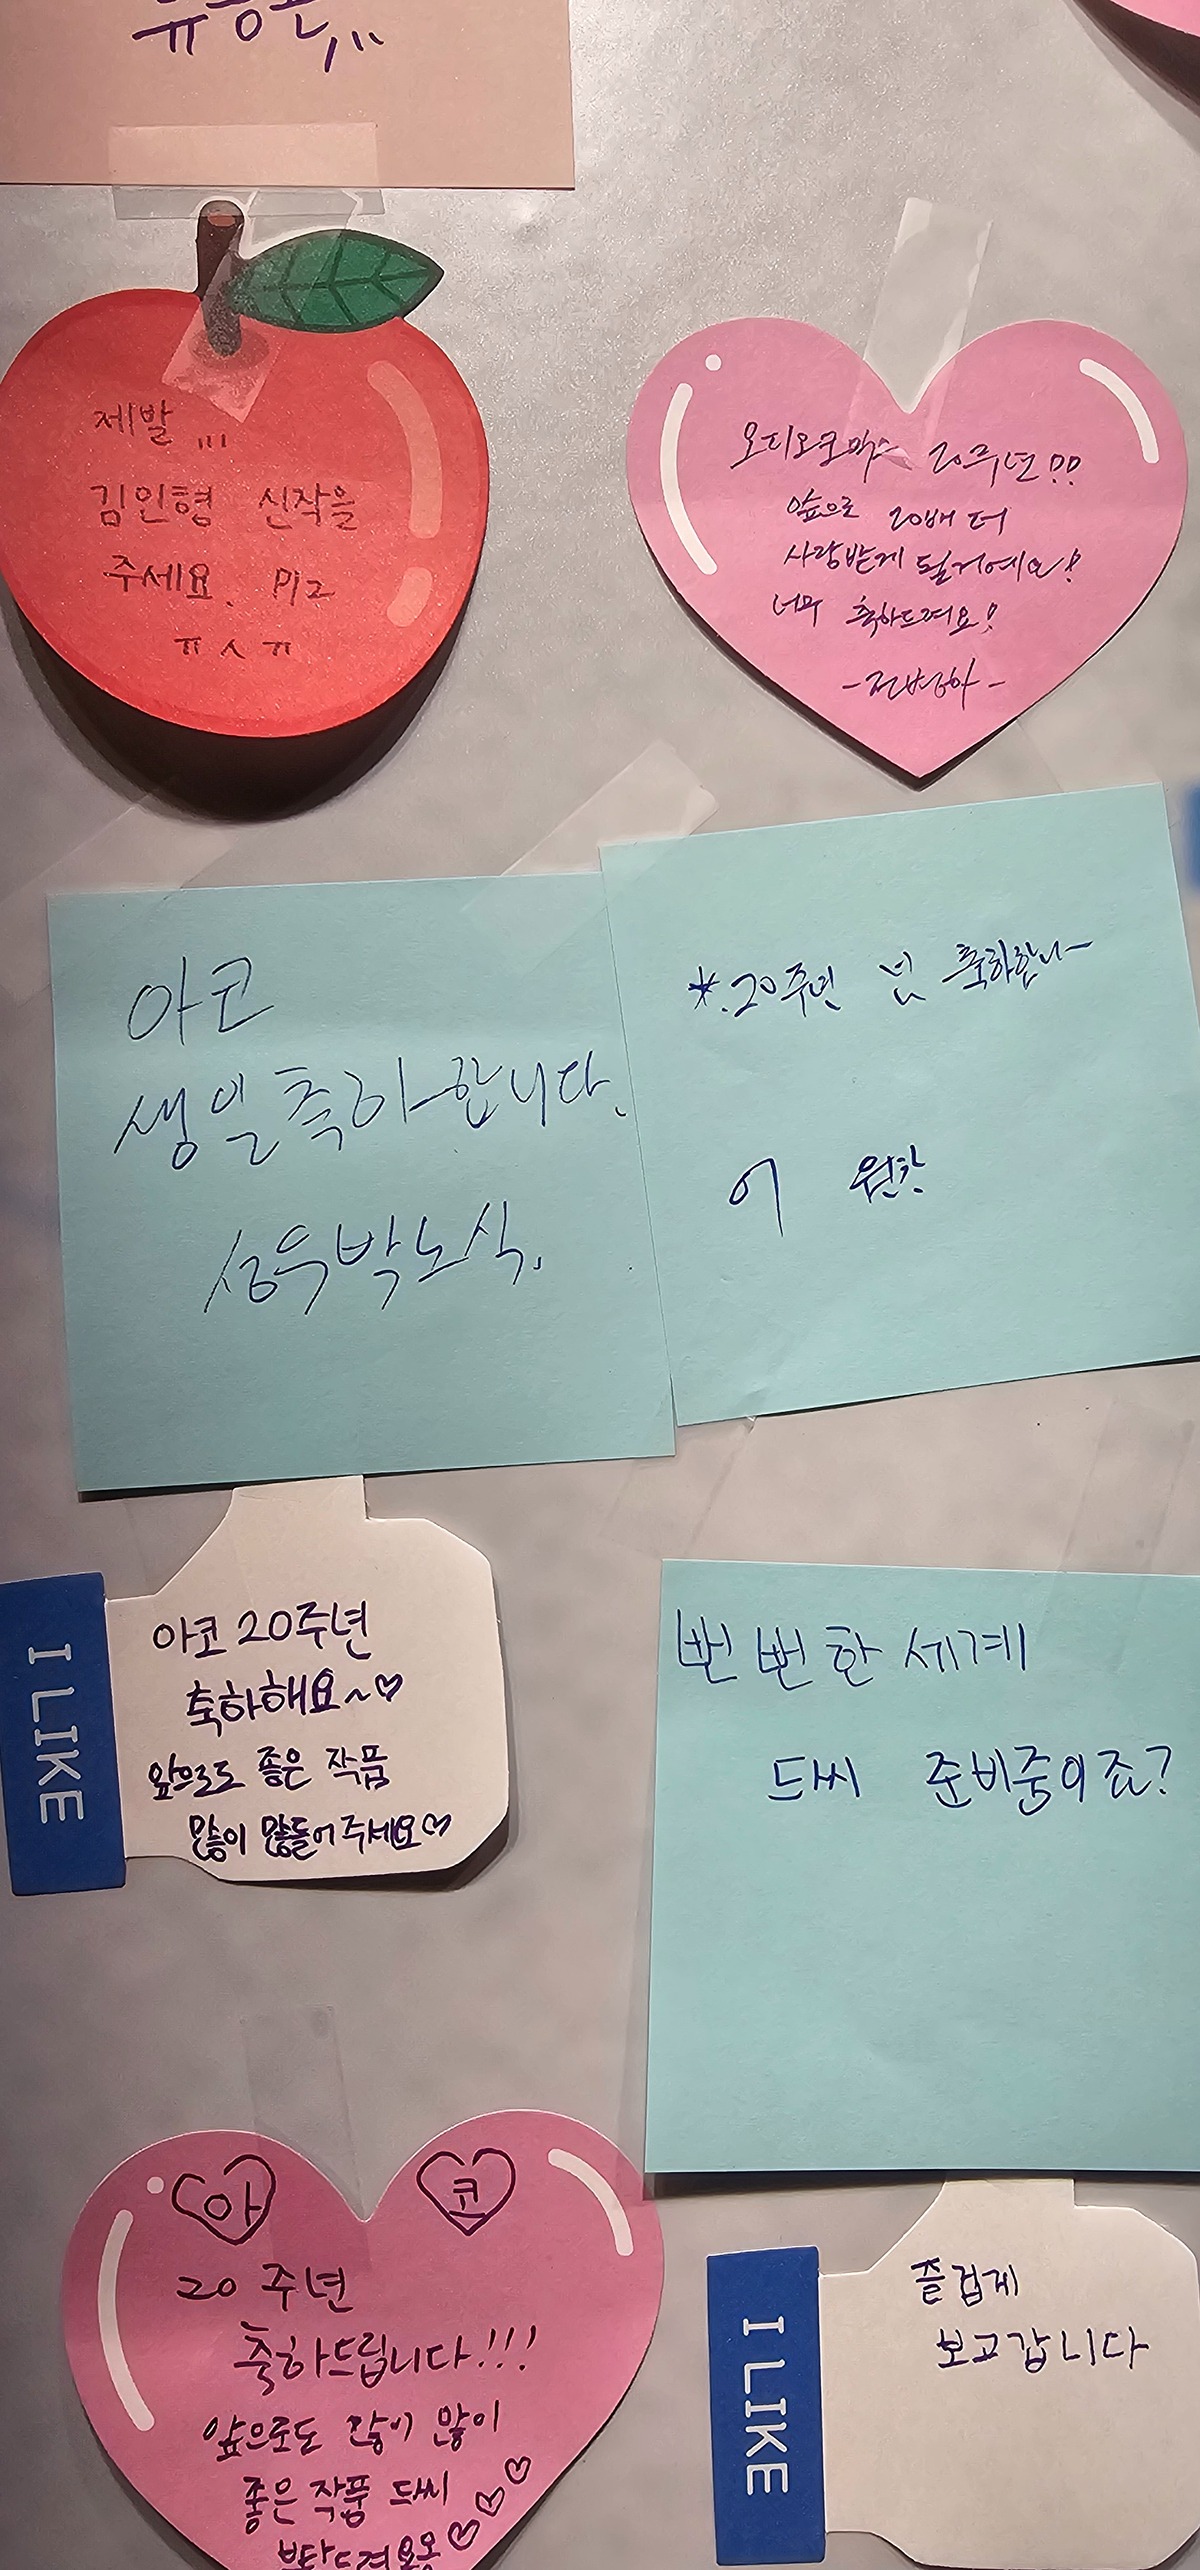 제발 ,,,
김인형 신작을
주세요. 플리즈
ㅠㅅㅠ
오디오코믹스 20주년!!
앞으로 20배 더
사랑받게 될거예요!
너무 축하드려요!
아코
생일축하합니다.
성우박노식.
*.20주년 넘 축하합니~
이 원찬
아코 20주년
축하해요~♡
앞으로도 좋은 작품
많이 많들어주세요♡
뻔뻔한 세계
드씨 준비중이죠?
I LIKE
아 코
20주년
축하드립니다!!!
앞으로도 많이 많이
좋은 작품 드씨
부탁드려용용
♡♡♡
즐겁게
보고갑니다
I LIKE